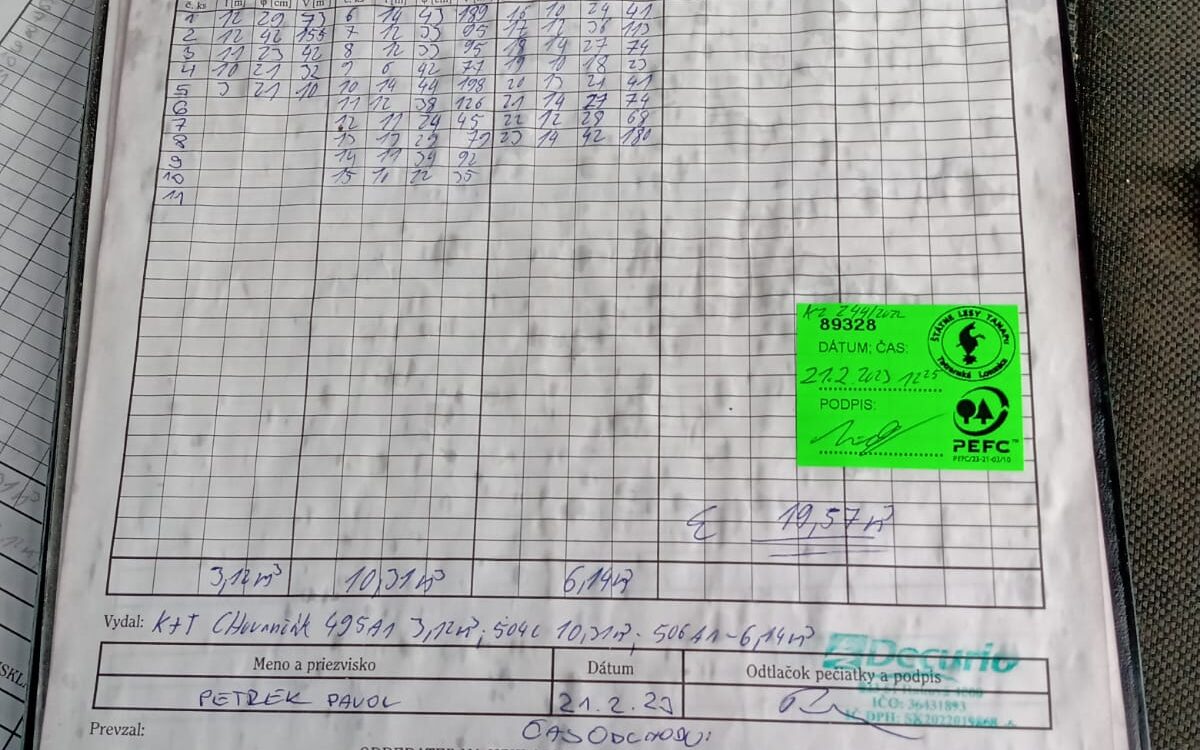 č. ks l [m] φ [cm] V [m]
1 12 29 73 6 14 43 189 16 10 24 41
2 12 42 155 7 12 33 95 17 12 36 113
3 11 23 42 8 12 33 95 18 14 27 74
4 10 21 32 9 6 42 77 19 10 18 23
5 3 21 10 10 14 44 198 20 13 21 41
6 11 12 38 126 21 14 27 74
7 12 11 24 45 22 12 28 68
8 13 13 29 79 23 14 42 180
9 14 11 34 92
10 15 11 22 35
11
KZ 244/2022
89328
ŠTÁTNE LESY TANAPu
Tatranská Lomnica
DÁTUM; ČAS:
21.2.2023 12 25
PODPIS:
PEFC™
PEFC/23-21-03/10
Σ 19,57 m³
3,12 m³ 10,31 m³ 6,14 m³
Vydal: K+T 495A1 3,12 m³; 504c 10,31 m³; 506A1 - 6,14 m³
Decurio
Meno a priezvisko Dátum Odtlačok pečiatky a podpis
PETREK PAVOL 21.2.23
IČO: 36431893
IČ DPH:
Prevzal: ČAS ODCHODU: